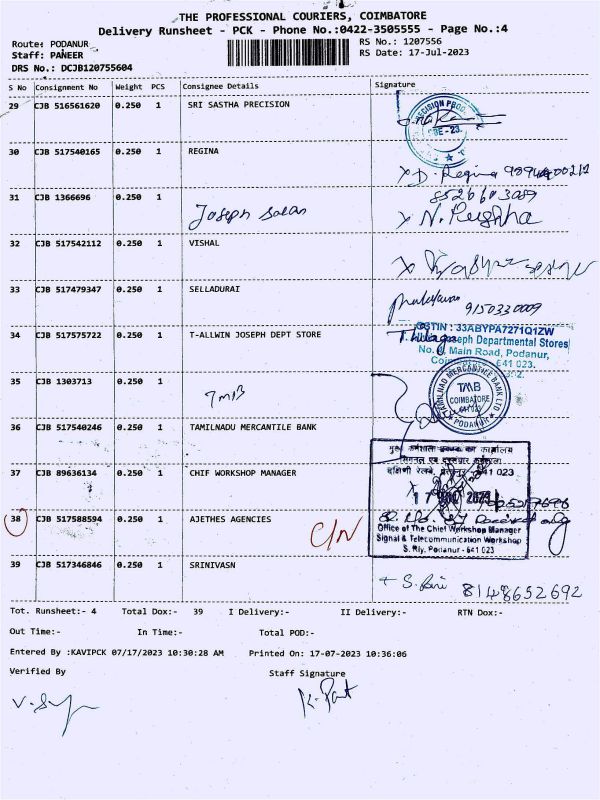 THE PROFESSIONAL COURIERS, COIMBATORE
Delivery Runsheet - PCK - Phone No.:0422-3505555 - Page No.:4
Route: PODANUR
RS No.: 1207556
Staff: PANEER
RS Date: 17-Jul-2023
DRS No.: DCJB120755604
S No Consignment No Weight PCS Consignee Details Signature
29 CJB 516561620 0.250 1 SRI SASTHA PRECISION
30 CJB 517540165 0.250 1 REGINA
D. Regina
31 CJB 1366696 0.250 1
8526603089
Joseph
N.
32 CJB 517542112 0.250 1 VISHAL
33 CJB 517479347 0.250 1 SELLADURAI
9150330009
34 CJB 517575722 0.250 1 T-ALLWIN JOSEPH DEPT STORE
GSTIN : 33ABYPA7271Q1ZW
Joseph Departmental Stores
No. Main Road, Podanur,
641 023.
35 CJB 1303713 0.250 1
TMB
TAMILNAD MERCANTILE BANK LTD
TMB
COIMBATORE
641023
PODANUR
36 CJB 517540246 0.250 1 TAMILNADU MERCANTILE BANK
37 CJB 89636134 0.250 1 CHIF WORKSHOP MANAGER
641 023
38 CJB 517588594 0.250 1 AJETHES AGENCIES
C/N
Office of The Chief Workshop Manager
Signal & Telecommunication Workshop
S. Rly, Podanur - 641 023
39 CJB 517346846 0.250 1 SRINIVASN
8148652692
Tot. Runsheet:- 4 Total Dox:- 39 I Delivery:- II Delivery:- RTN Dox:-
Out Time:- In Time:- Total POD:-
Entered By :KAVIPCK 07/17/2023 10:30:28 AM Printed On: 17-07-2023 10:36:06
Verified By Staff Signature